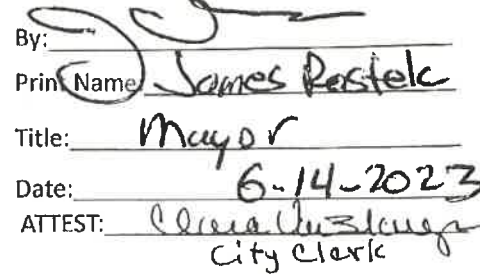 By:
Print Name James Rostek
Title: Mayor
Date: 6-14-2023
ATTEST:
City Clerk